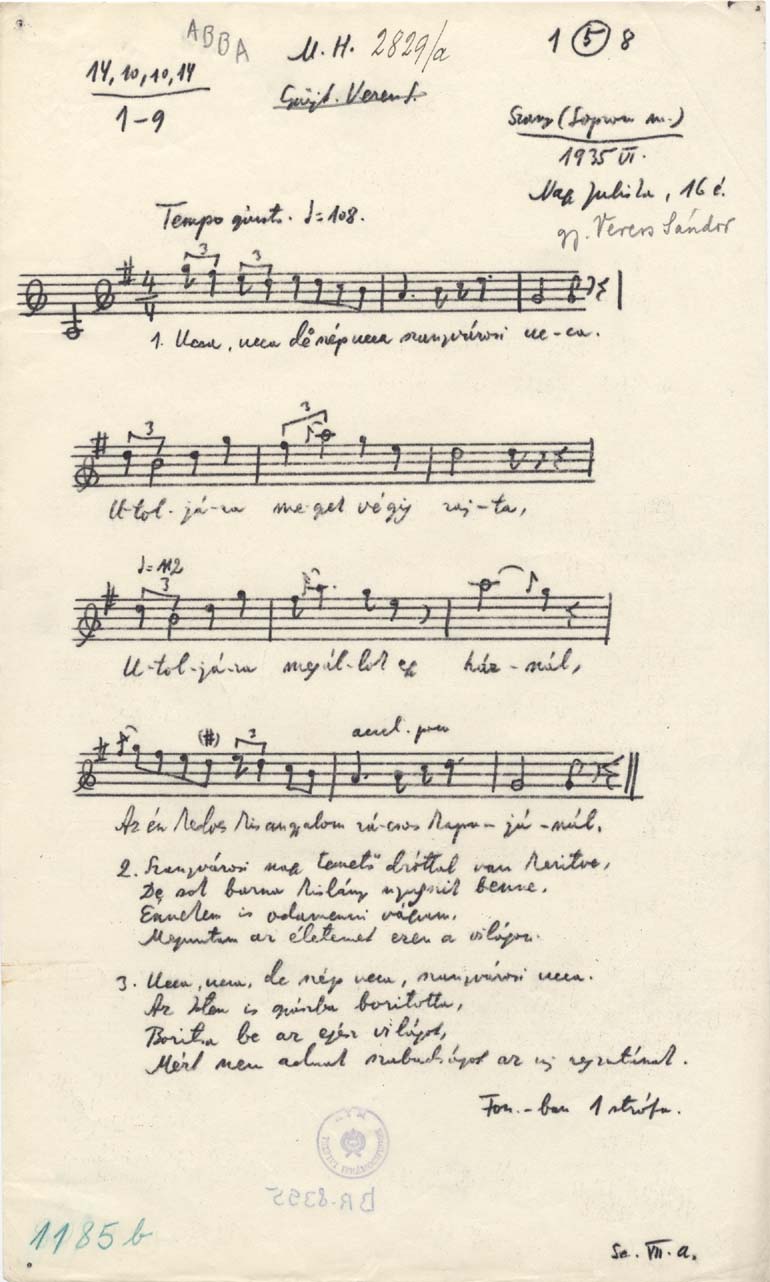 ABBA
M. H. 2829/a
1 5 8
14, 10, 10, 14
1-9
Gyűjt. Veress.
Szany (Sopron m.)
1935 VI.
Nagy Juliska, 16 é.
gy. Veress Sándor
Tempo giusto. ♩=108.
3 3
4/4
1. Ucca, ucca de szép ucca szanyvárosi uc-ca.
3 3
U-tol-já-ra me-gek végig raj-ta,
♩=112
3
U-tol-já-ra megál-lok egy ház-nál,
(#) 3 accel. poco
Az én kedves kisangyalom rá-csos kapu-já-nál.
2. Szanyvárosi nagy temető dróttal van keritve,
De sok barna kislány nyugszik benne,
Énnekem is odamenni vágyom,
Meguntam az életemet ezen a világon.
3. Ucca, ucca, de szép ucca, szanyvárosi ucca.
Az Isten is gyászba boritotta,
Boritsa be az egész világot,
Mért nem adnak szabadságot az
Fon.-ban 1 strófa.
BR-8355
1185b
Sz. VII. a.